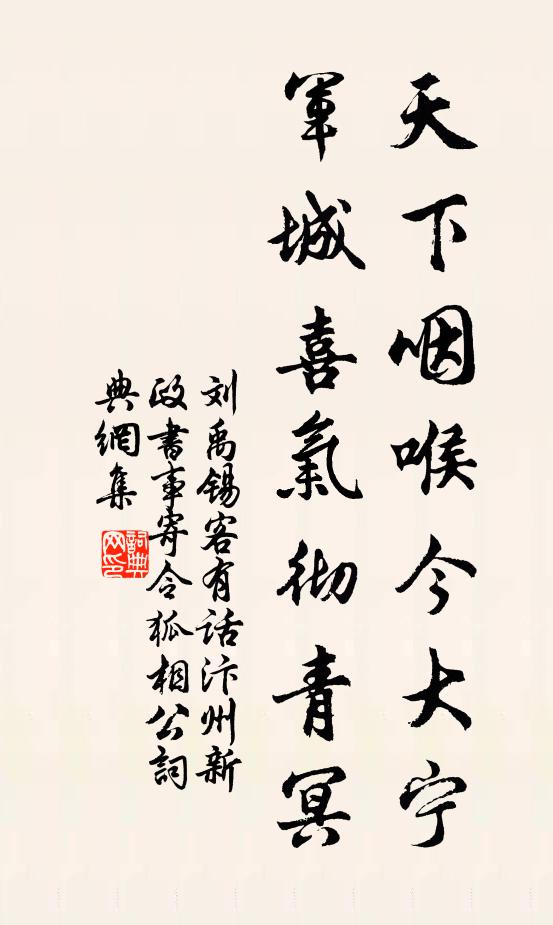 天下咽喉今大宁
軍城喜氣彻青冥
刘禹锡客有话汴州新
政書事寄令狐相公詞
典網集
詞典网印